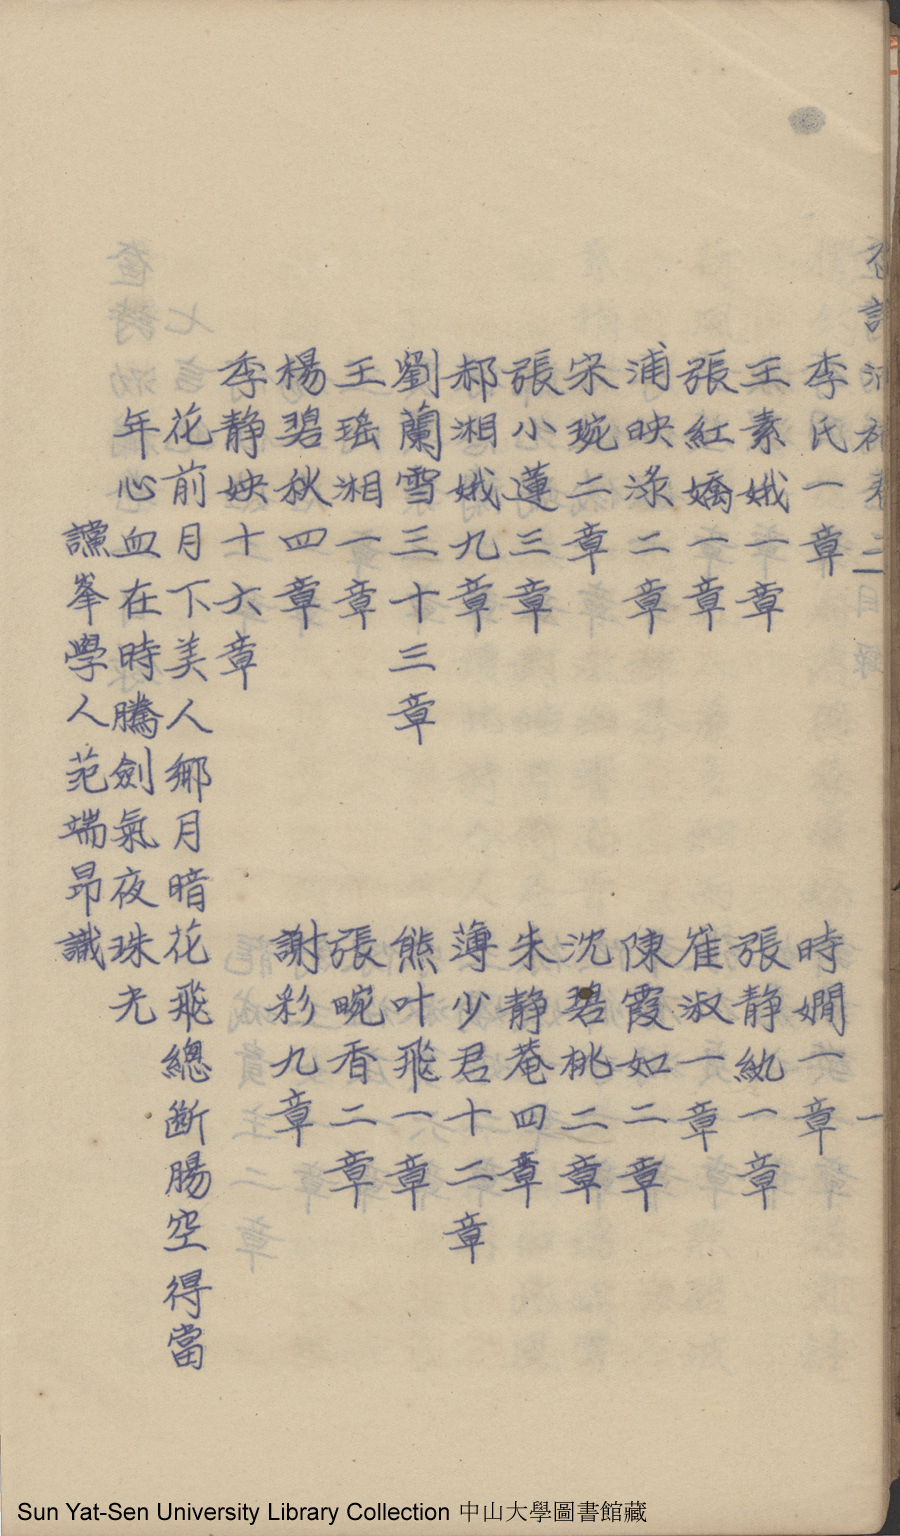 奩詩泐補卷三目錄 一
李氏一章 時嫺一章
王素娥一章 張静紈一章
張紅嬌一章 崔淑一章
浦映渌二章 陳霞如二章
宋琬二章 沈碧桃二章
張小蓮三章 朱静菴四章
郝湘娥九章 薄少君十二章
劉蘭雪三十三章 熊叶飛一章
王瑶湘一章 張畹香二章
楊碧秋四章 謝彩九章
季静姎十六章
花前月下美人鄉月暗花飛總斷腸空得當
年心血在時騰劍氣夜珠光
讜峯學人范端昂識
Sun Yat-Sen University Library Collection 中山大學圖書館藏